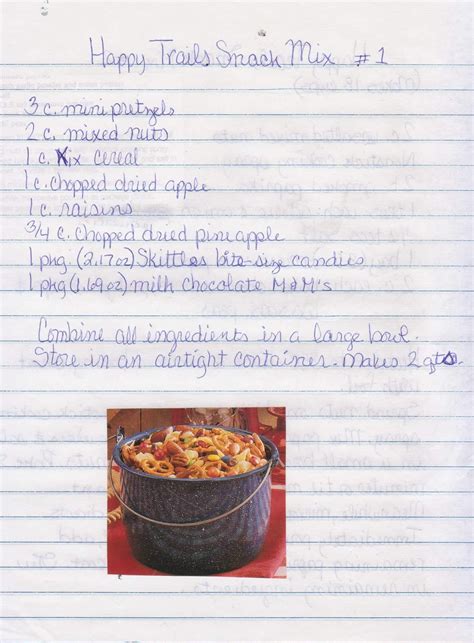 Happy Trails Snack Mix #1
3 c. mini pretzels
2 c. mixed nuts
1 c. Kix cereal
1 c. chopped dried apple
1 c. raisins
3/4 c. chopped dried pineapple
1 pkg. (2.17oz) Skittles bite-size candies
1 pkg (1.69oz) milk chocolate M&M's
Combine all ingredients in a large bowl.
Store in an airtight container. Makes 2 qts.